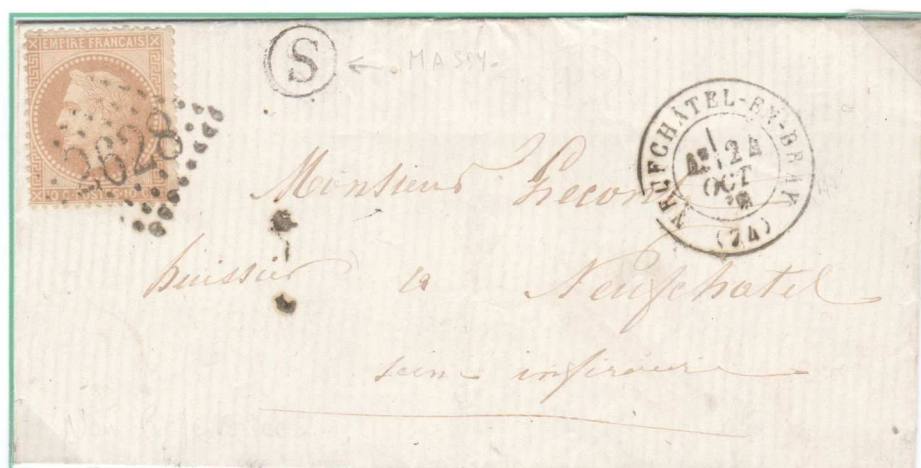 EMPIRE FRANÇAIS
2628
S
← MASSY.
NEUFCHÂTEL-EN-BRAY
24
OCT
(74)
Monsieur Lecom
huissier a Neufchatel
seine inferieure